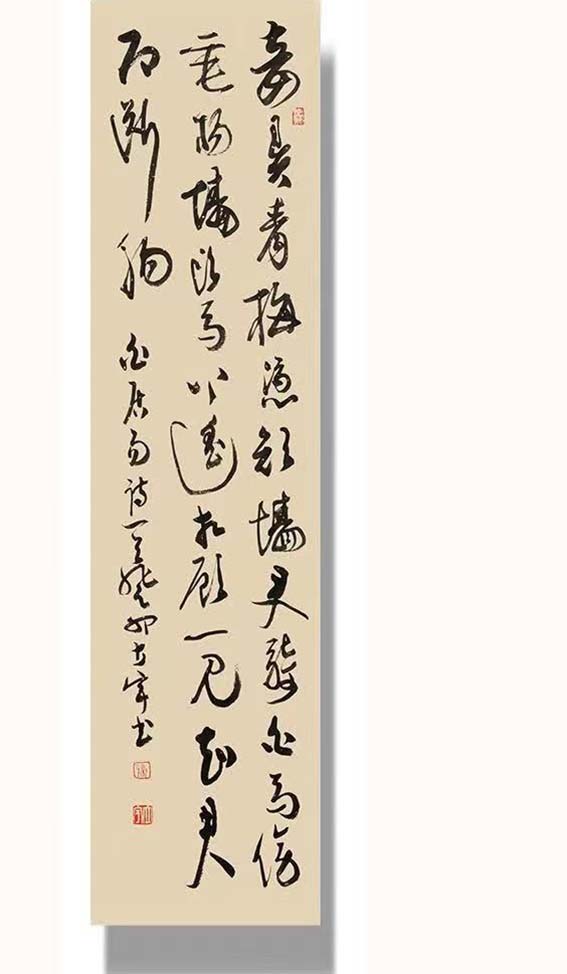 妾弄青梅憑短墙君骑白马傍
垂杨墙头马上遥相顾一见知君
即断肠 白居易诗一 癸卯 书